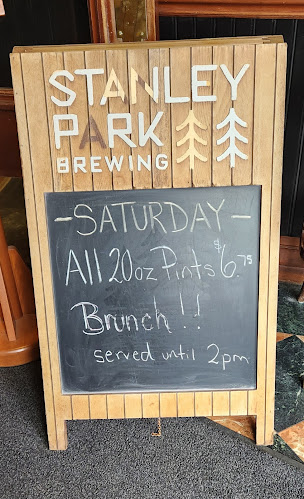 STANLEY
PARK
BREWING
- SATURDAY -
All 20oz Pints $6.75
Brunch!!
served until 2pm